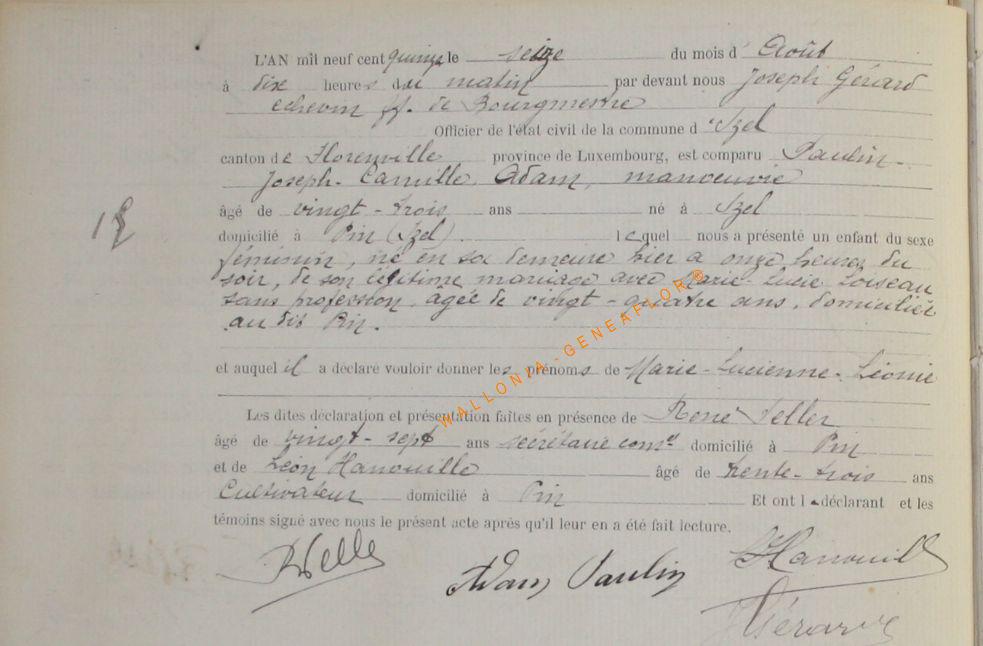 L'AN mil neuf cent quinze le seize du mois d' Août
à dix heures du matin par devant nous Joseph Gérard
échevin ff. de Bourgmestre
Officier de l'état civil de la commune d' Izel
canton de Florenville province de Luxembourg, est comparu Paulin-
Joseph-Camille Adam, manoeuvre
âgé de vingt-trois ans né à Izel
domicilié à Pin (Izel) lequel nous a présenté un enfant du sexe
féminin, né en sa demeure hier à onze heures du
soir, de son légitime mariage avec Marie-Lucie Loiseau
sans profession, âgée de vingt-quatre ans, domiciliée
au dit Pin.
et auquel il a déclaré vouloir donner les prénoms de Marie-Lucienne-Léonie
Les dites déclaration et présentation faites en présence de René Feller
âgé de vingt-sept ans secrétaire comal domicilié à Pin
et de Léon Hanouille âgé de trente-trois ans
Cultivateur domicilié à Pin Et ont le déclarant et les
témoins signé avec nous le présent acte après qu'il leur en a été fait lecture.
Adam Paulin
LHanouille
JGérard
WALLONIA-GENEAFLOR®